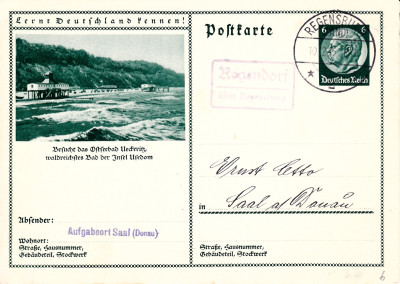 Lernt Deutschland kennen!
Postkarte
REGENSBURG
6 6
Deutsches Reich
Besucht das Ostseebad Ueckeritz,
waldreichstes Bad der Insel Usedom
Ernst Otto
in Saal a/Donau
Absender:
Aufgabeort Saal (Donau)
Wohnort:
Straße, Hausnummer,
Gebäudeteil, Stockwerk
Straße, Hausnummer,
Gebäudeteil, Stockwerk
6